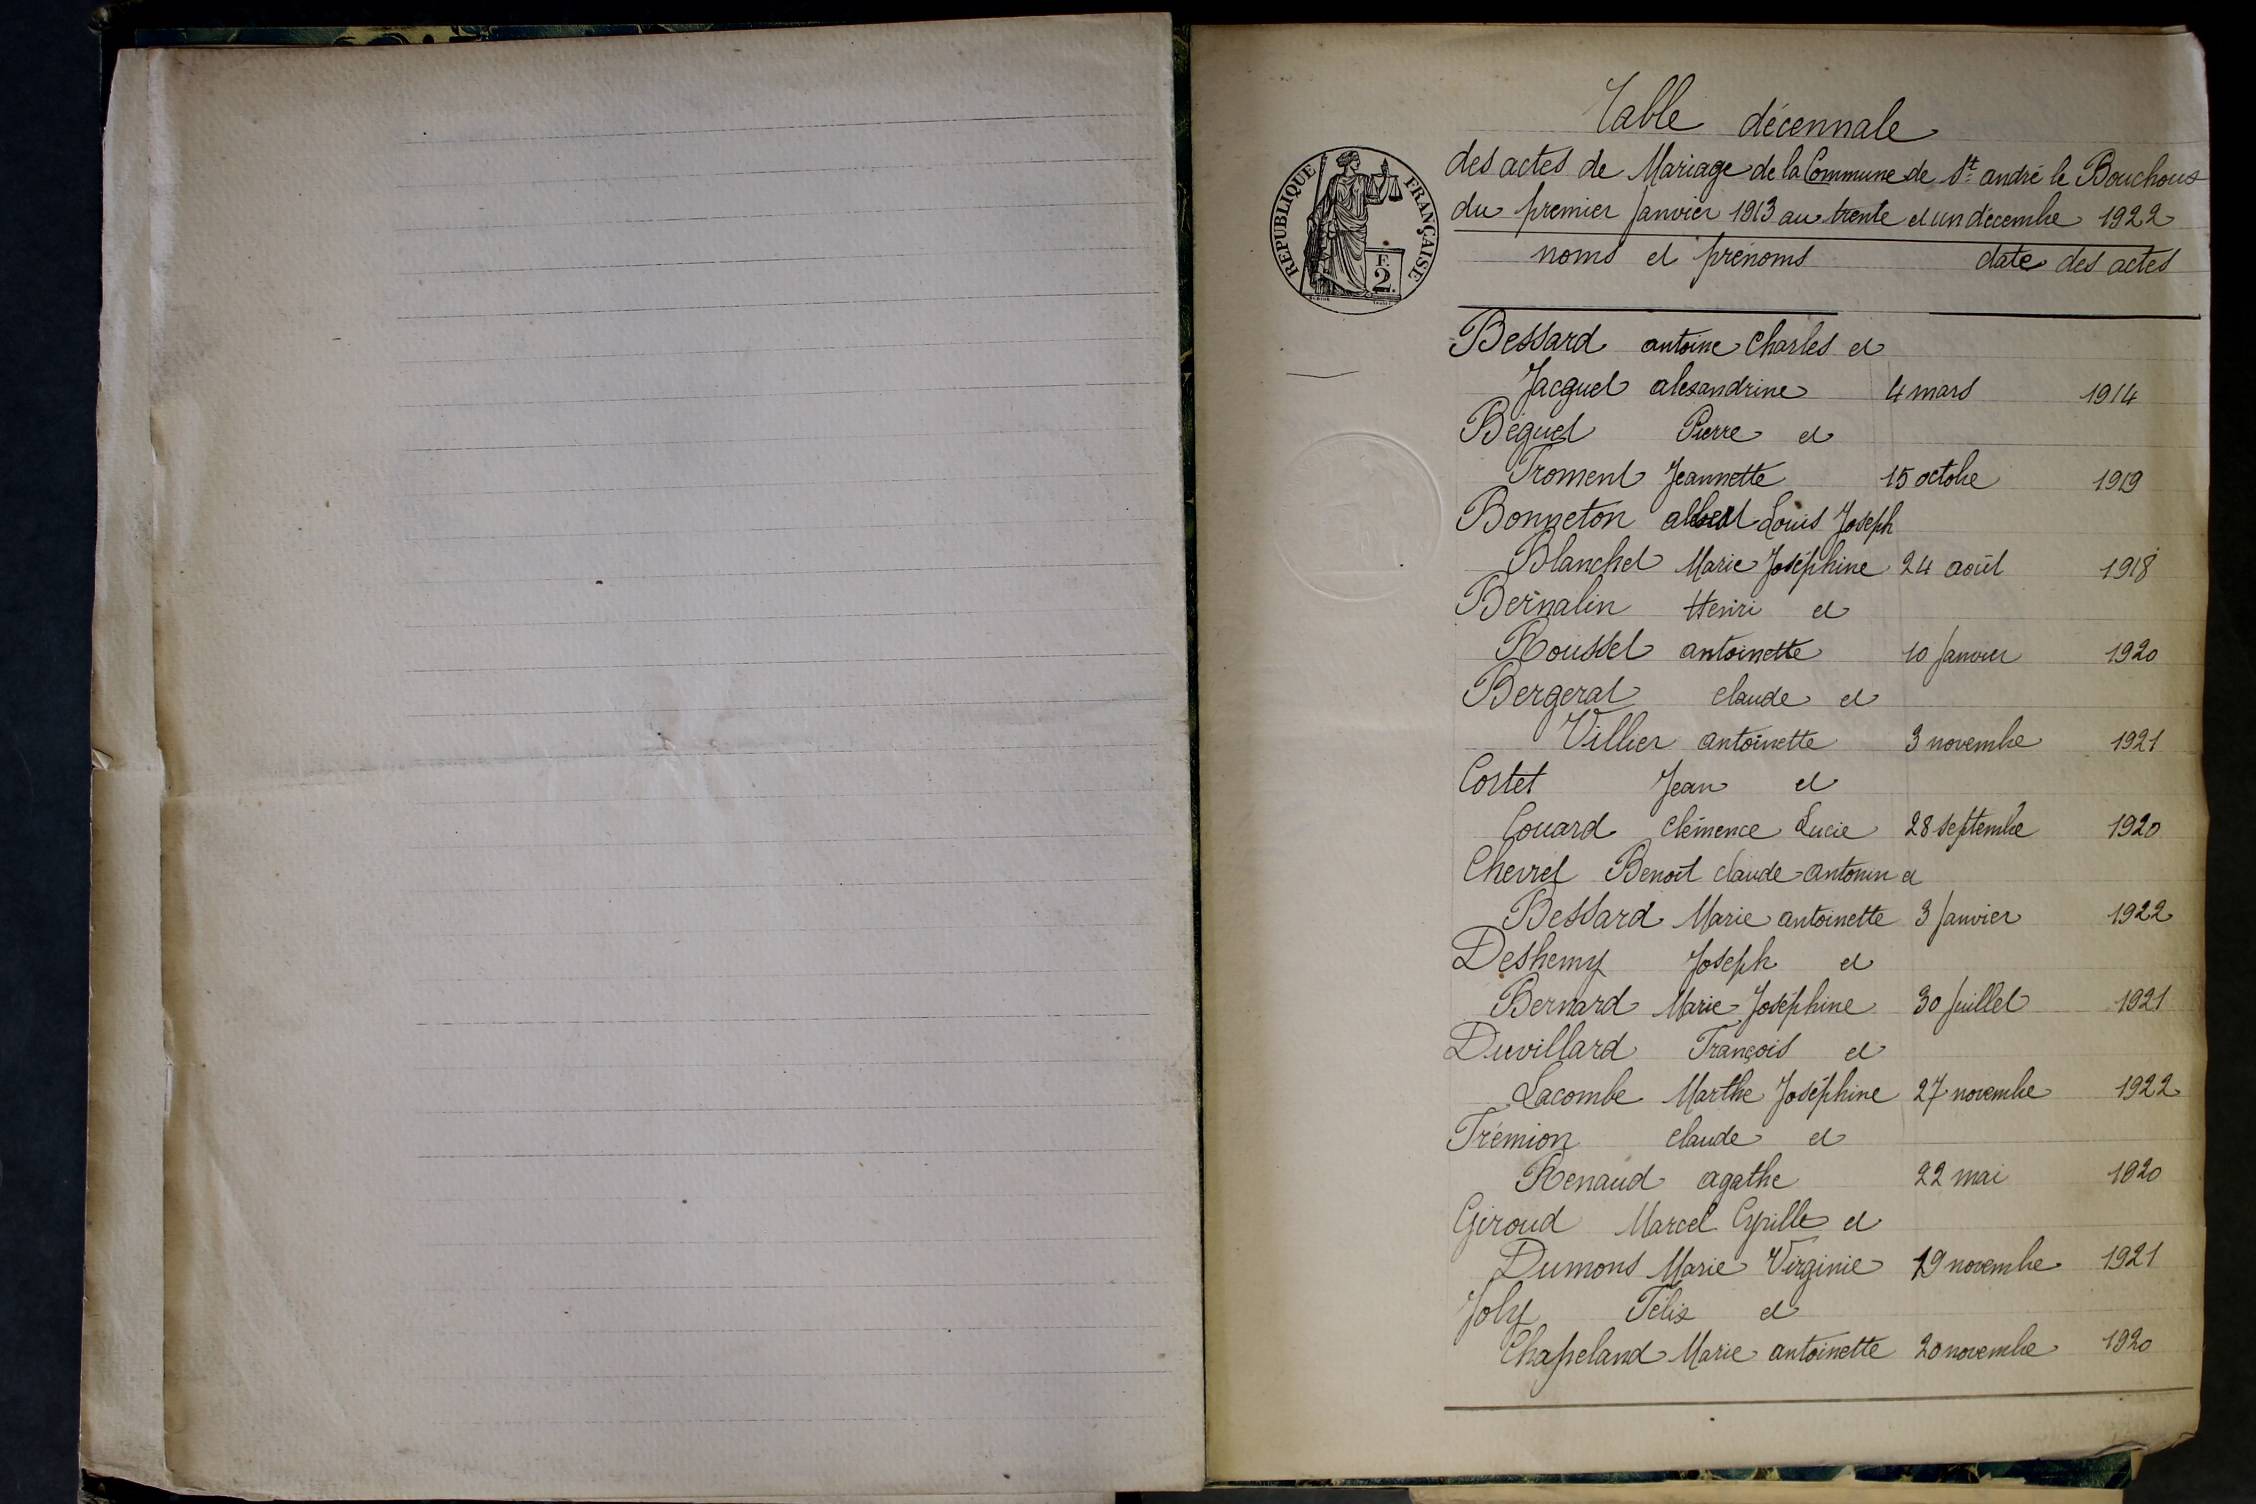 Table décennale
des actes de Mariage de la Commune de St andré le Bouchoux
du premier Janvier 1913 au trente et un décembre 1922
RÉPUBLIQUE FRANÇAISE
F.
2.
noms et prénoms date des actes
Bessard antoine Charles et
Jacquet alexandrine 4 mars 1914
Béguet Pierre et
Froment Jeannette 15 octobre 1919
Bonneton albert Louis Joseph
Blanchet Marie Joséphine 24 août 1918
Bernalin Henri et
Roussel antoinette 10 Janvier 1920
Bergerat claude et
Villier antoinette 3 novembre 1921
Cortet Jean et
Couard clémence Lucie 28 septembre 1920
Chevret Benoît claude antonin et
Bessard Marie antoinette 3 Janvier 1922
Joseph et
Bernard Marie-Joséphine 30 Juillet 1921
Duvillard François et
Lacombe Marthe Joséphine 27 novembre 1922
Frémion claude et
Renaud agathe 22 mai 1920
Giroud Marcel Cyrille et
Dumons Marie Virginie 19 novembre 1921
Joly Félix et
Chapeland Marie antoinette 20 novembre 1920